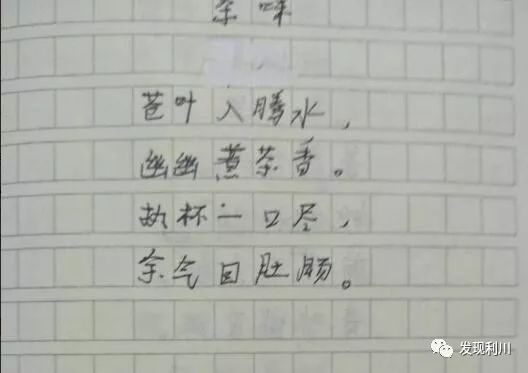 余味
苍叶入腾水，
幽幽煮茶香。
执杯一口尽，
余气回肚肠。
发现利川